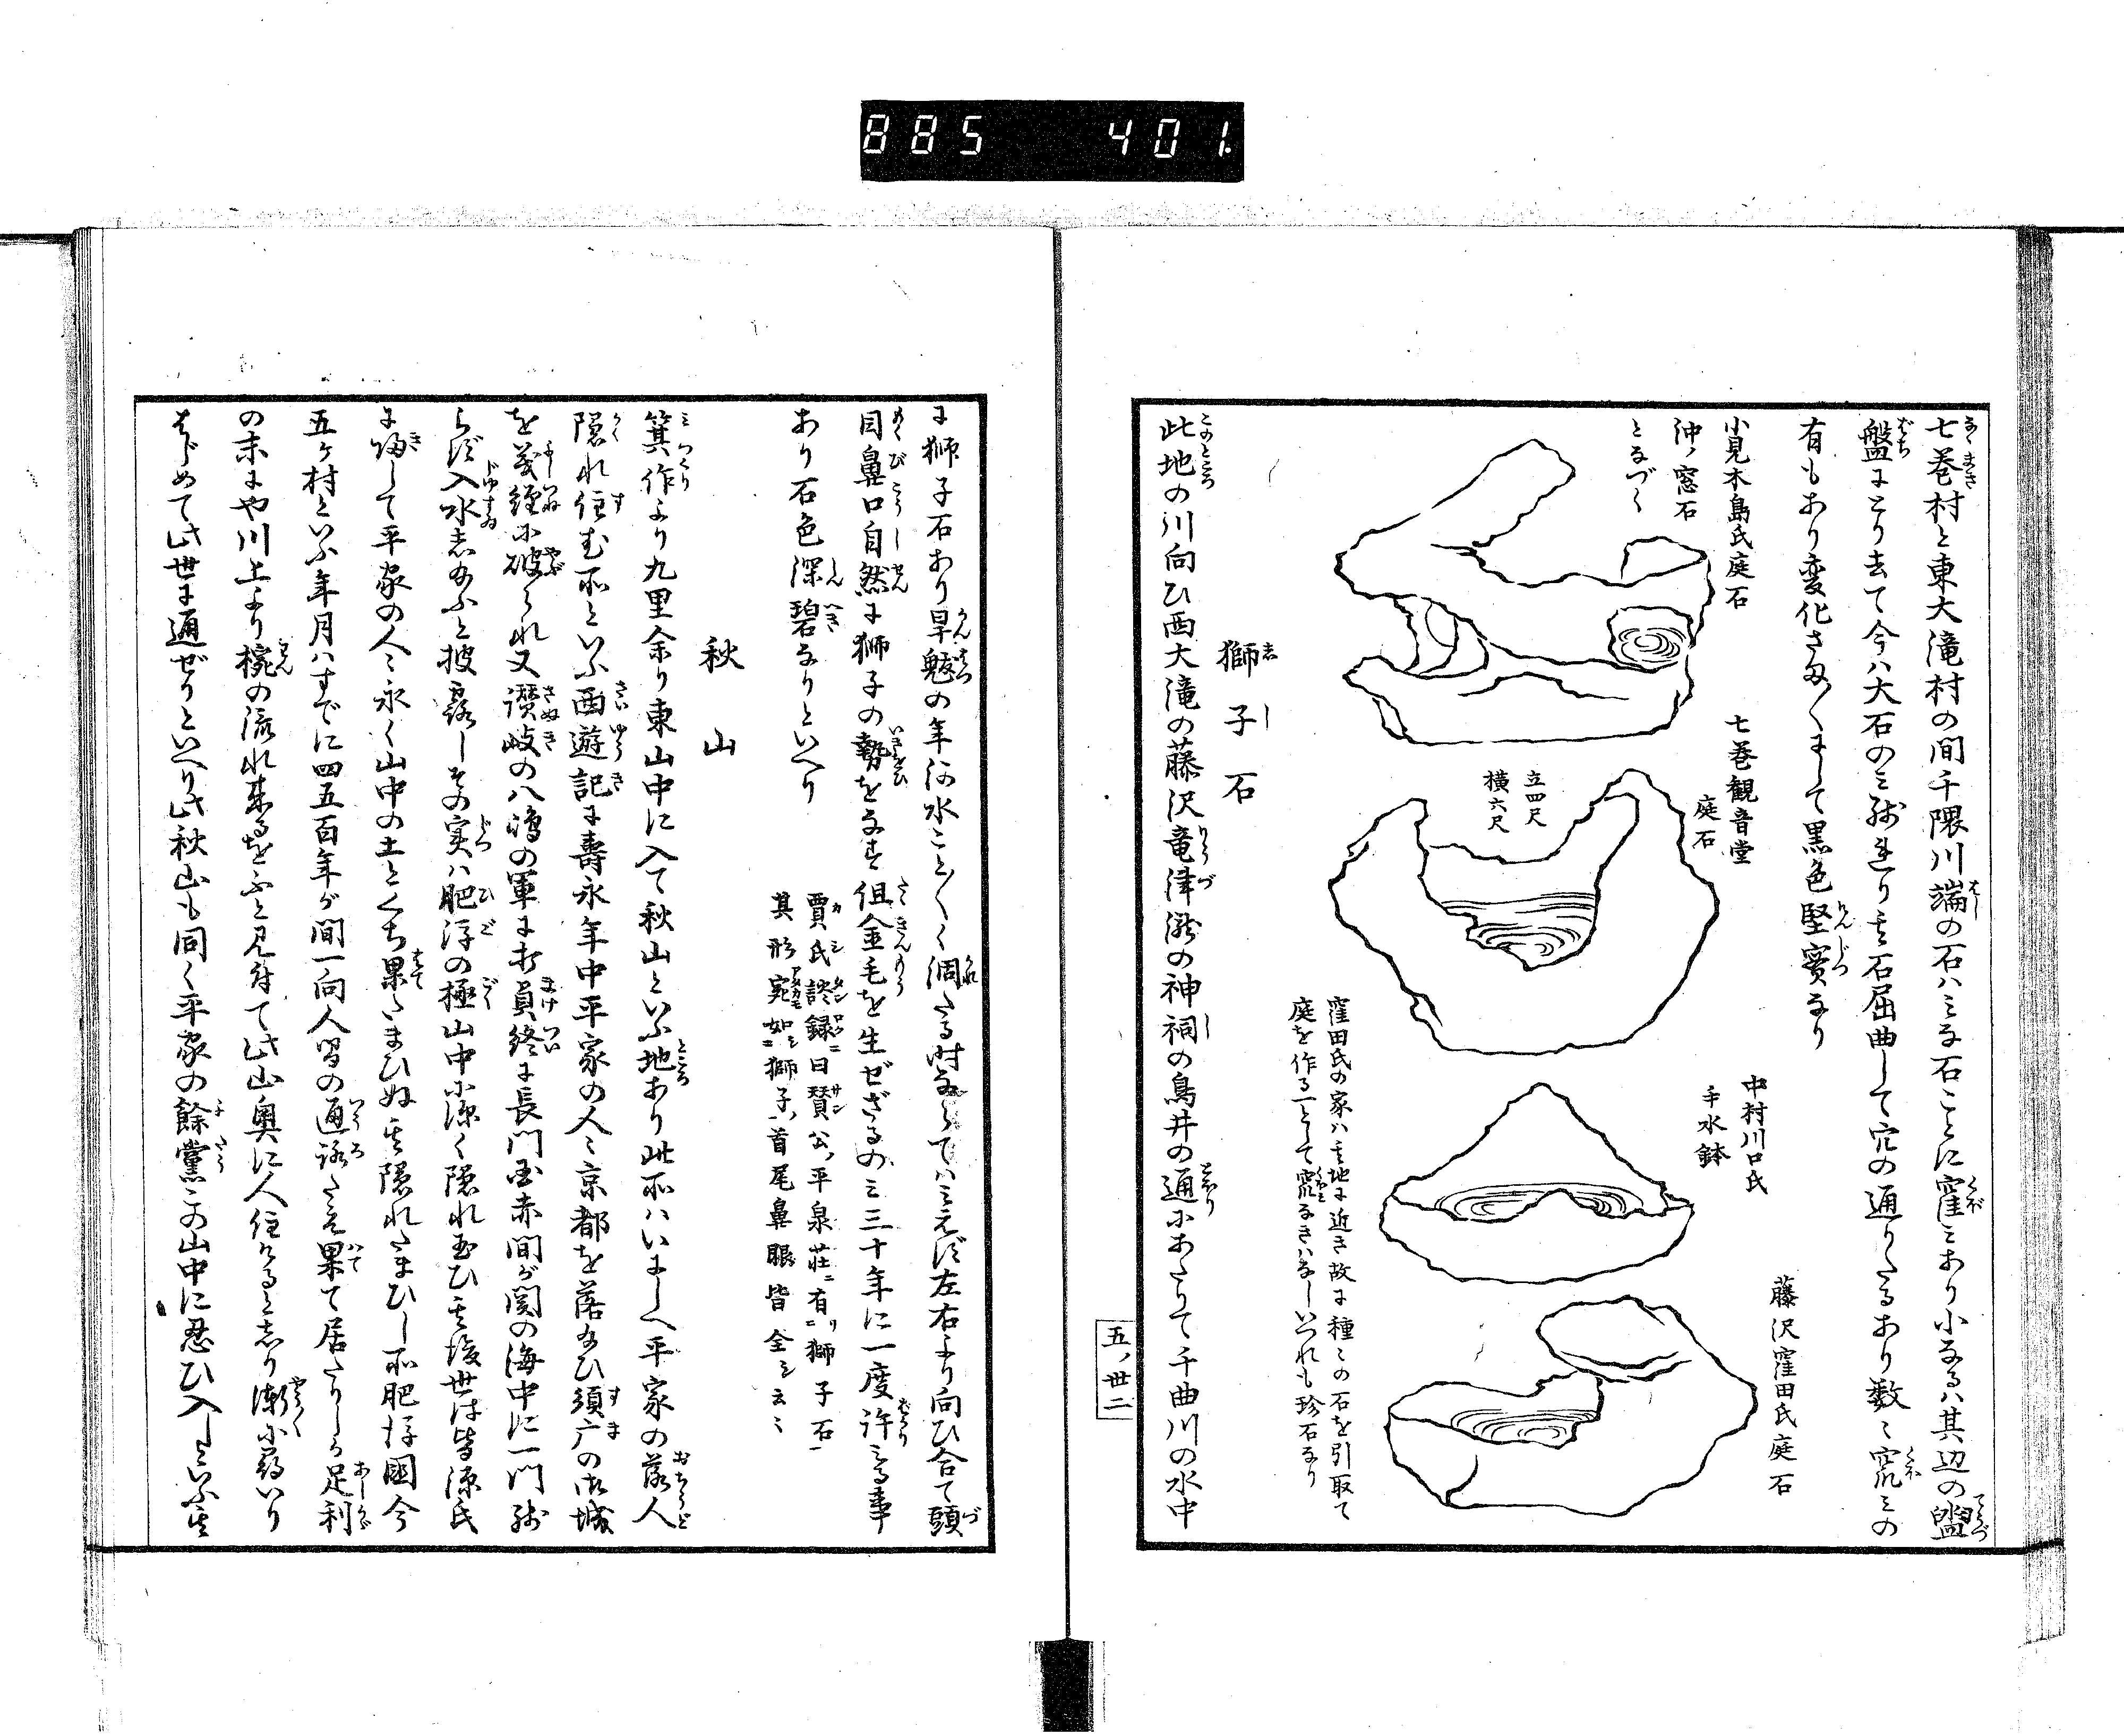 885 401
七巻村と東大滝村の間千隈川端の石ハみな石ことに窪ミあり小なるハ其辺の盥
盤にとり去て今ハ大石のミ残れり其石屈曲して穴の通りたるあり数々窊ミの
有もあり変化さま〲にして黒色堅実なり
小見木島氏庭石
沖ノ窓石
となづく
七巻観音堂
庭石
立四尺
横六尺
中村川口氏
手水鉢
藤沢窪田氏庭石
窪田氏の家ハ其地に近き故に種々の石を引取て
庭を作る一として窊なきハなしいづれも珍石なり
獅子石
此地の川向ひ西大滝の藤沢竜津瀧の神祠の鳥井の通にあたりて千曲川の水中
五ノ卅二
に獅子石あり旱魃の年河水こと〲く涸たる時ならでハみえず左右より向ひ合て頭
目鼻口自然に獅子の勢をなす但金毛を生ぜざるのミ三十年に一度許ミる事
あり石色深碧なりといへり
賈氏談録ニ曰賛公ノ平泉荘ニ有リ獅子石一
其形宛如ニシ獅子ノ首尾鼻眼皆全シ云々
秋山
箕作より九里余り東山中に入て秋山といふ地あり此所ハいにしへ平家の落人
隠れ住む所といふ西遊記に壽永年中平家の人々京都を落玉ひ須广の御城
を義経に破られ又讃岐の八嶋の軍に打負終に長門国赤間が関の海中に一門残
らず入水し玉ふと披露しその実ハ肥後の極山中に深く隠れ玉ひ其後世は皆源氏
に帰して平家の人々永く山中の土とくち果たまひぬ其隠れたまひし所肥後国今
五ヶ村といふ年月ハすでに四五百年が間一向人間の通路たえ果て居たりしが足利
の末にや川上より椀の流れ来るをふと見付て此山奥に人住けると志り漸に尋いり
はじめて此世に通ぜりといへり此秋山も同く平家の餘黨この山中に忍ひ入しといふ其